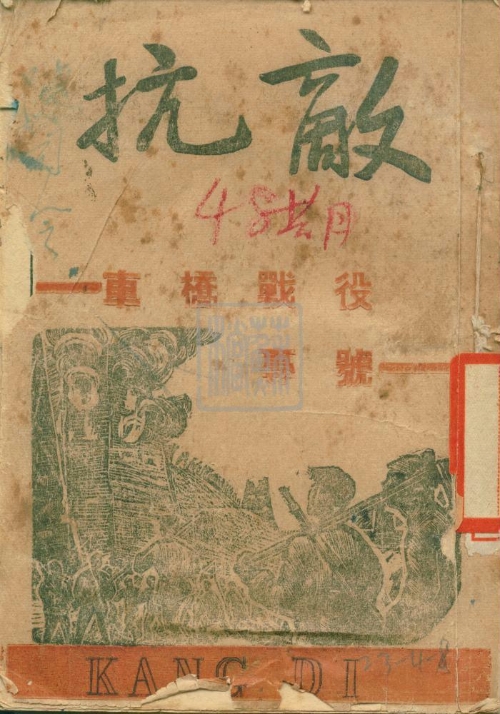 抗敵
48期
車橋戰役
專號
KANG DI